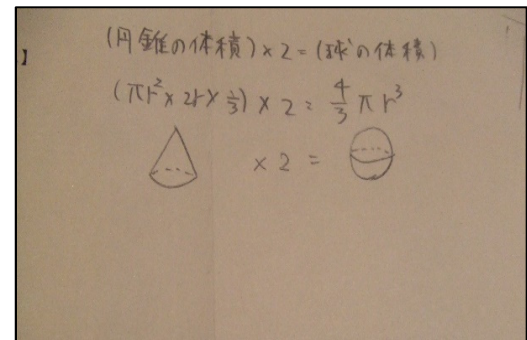 】
(円錐の体積)×2=(球の体積)
(πr²×2r×1/3)×2=4/3πr³
×2=